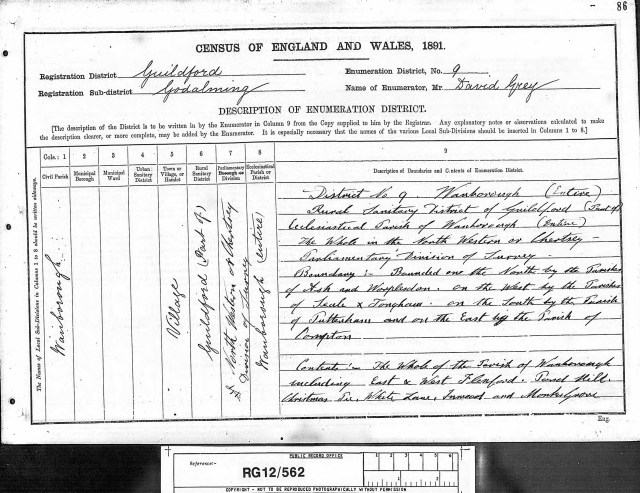 86
CENSUS OF ENGLAND AND WALES, 1891.
Registration District Guildford
Enumeration District, No. 9
Registration Sub-district Godalming
Name of Enumerator, Mr David Grey
DESCRIPTION OF ENUMERATION DISTRICT.
[The description of the District is to be written in by the Enumerator in Column 9 from the Copy supplied to him by the Registrar. Any explanatory notes or observations calculated to
make the description clearer, or more complete, may be added by the Enumerator. It is especially necessary that the names of the various Local Sub-Divisions should be inserted in Columns 1 to 8.]
Cols.: 1 2 3 4 5 6 7 8 9
Civil Parish
Municipal Borough
Municipal Ward
Urban Sanitary District
Town or Village, or Hamlet
Rural Sanitary District
Parliamentary Borough or Division
Ecclesiastical Parish or District
Description of Boundaries and Contents of Enumeration District.
The Names of Local Sub-Divisions in Columns 1 to 8 should be written sideways.
Wanborough
Village
Guildford (Part of)
North Western or Chertsey
Division of Surrey
Wanborough (Entire)
District No 9 Wanborough (Entire)
Rural Sanitary District of Guildford (Part of)
Ecclesiastical Parish of Wanborough (Entire)
The Whole in the North Western or Chertsey
Parliamentary Division of Surrey
Boundary :- Bounded one the North by the Parishes
of Ash and Worplesdon. On the West by the Parishes
of Seale & Tongham. on the South by the Parish
of Puttenham and on the East by the Parish of
Compton
Contents :- The Whole of the Parish of Wanborough
including East & West Flexford.
Christmas Pie, White Lane, Inwood and Monks Grove
Eng.
Reference:-
PUBLIC RECORD OFFICE
RG12/562
1 2
COPYRIGHT - NOT TO BE REPRODUCED PHOTOGRAPHICALLY WITHOUT PERMISSION